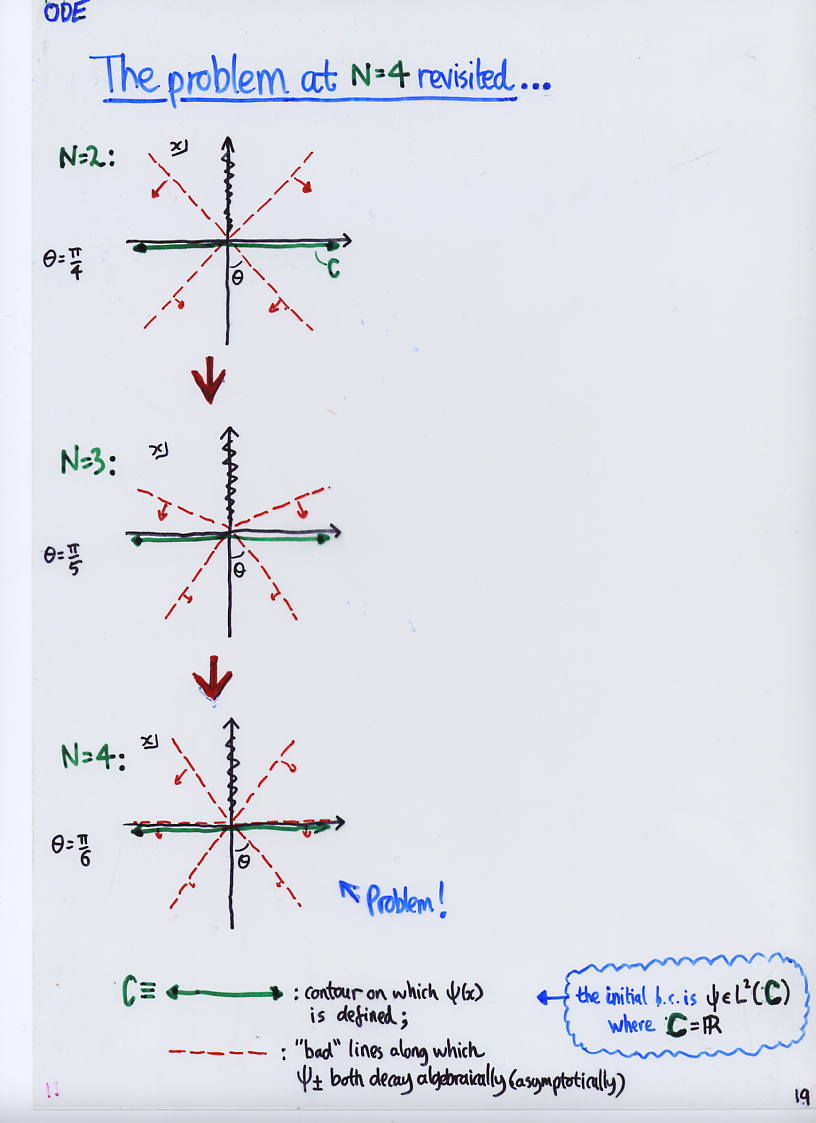 ODE
The problem at N=4 revisited...
N=2:
x
θ=π/4
C
θ
N=3:
x
θ=π/5
θ
N=4:
x
θ=π/6
θ
Problem!
C≡ : contour on which ψ(x)
is defined;
the initial b.c. is ψ∈L²(C)
where C=ℝ
: "bad" lines along which
ψ± both decay algebraically (asymptotically)
11
19